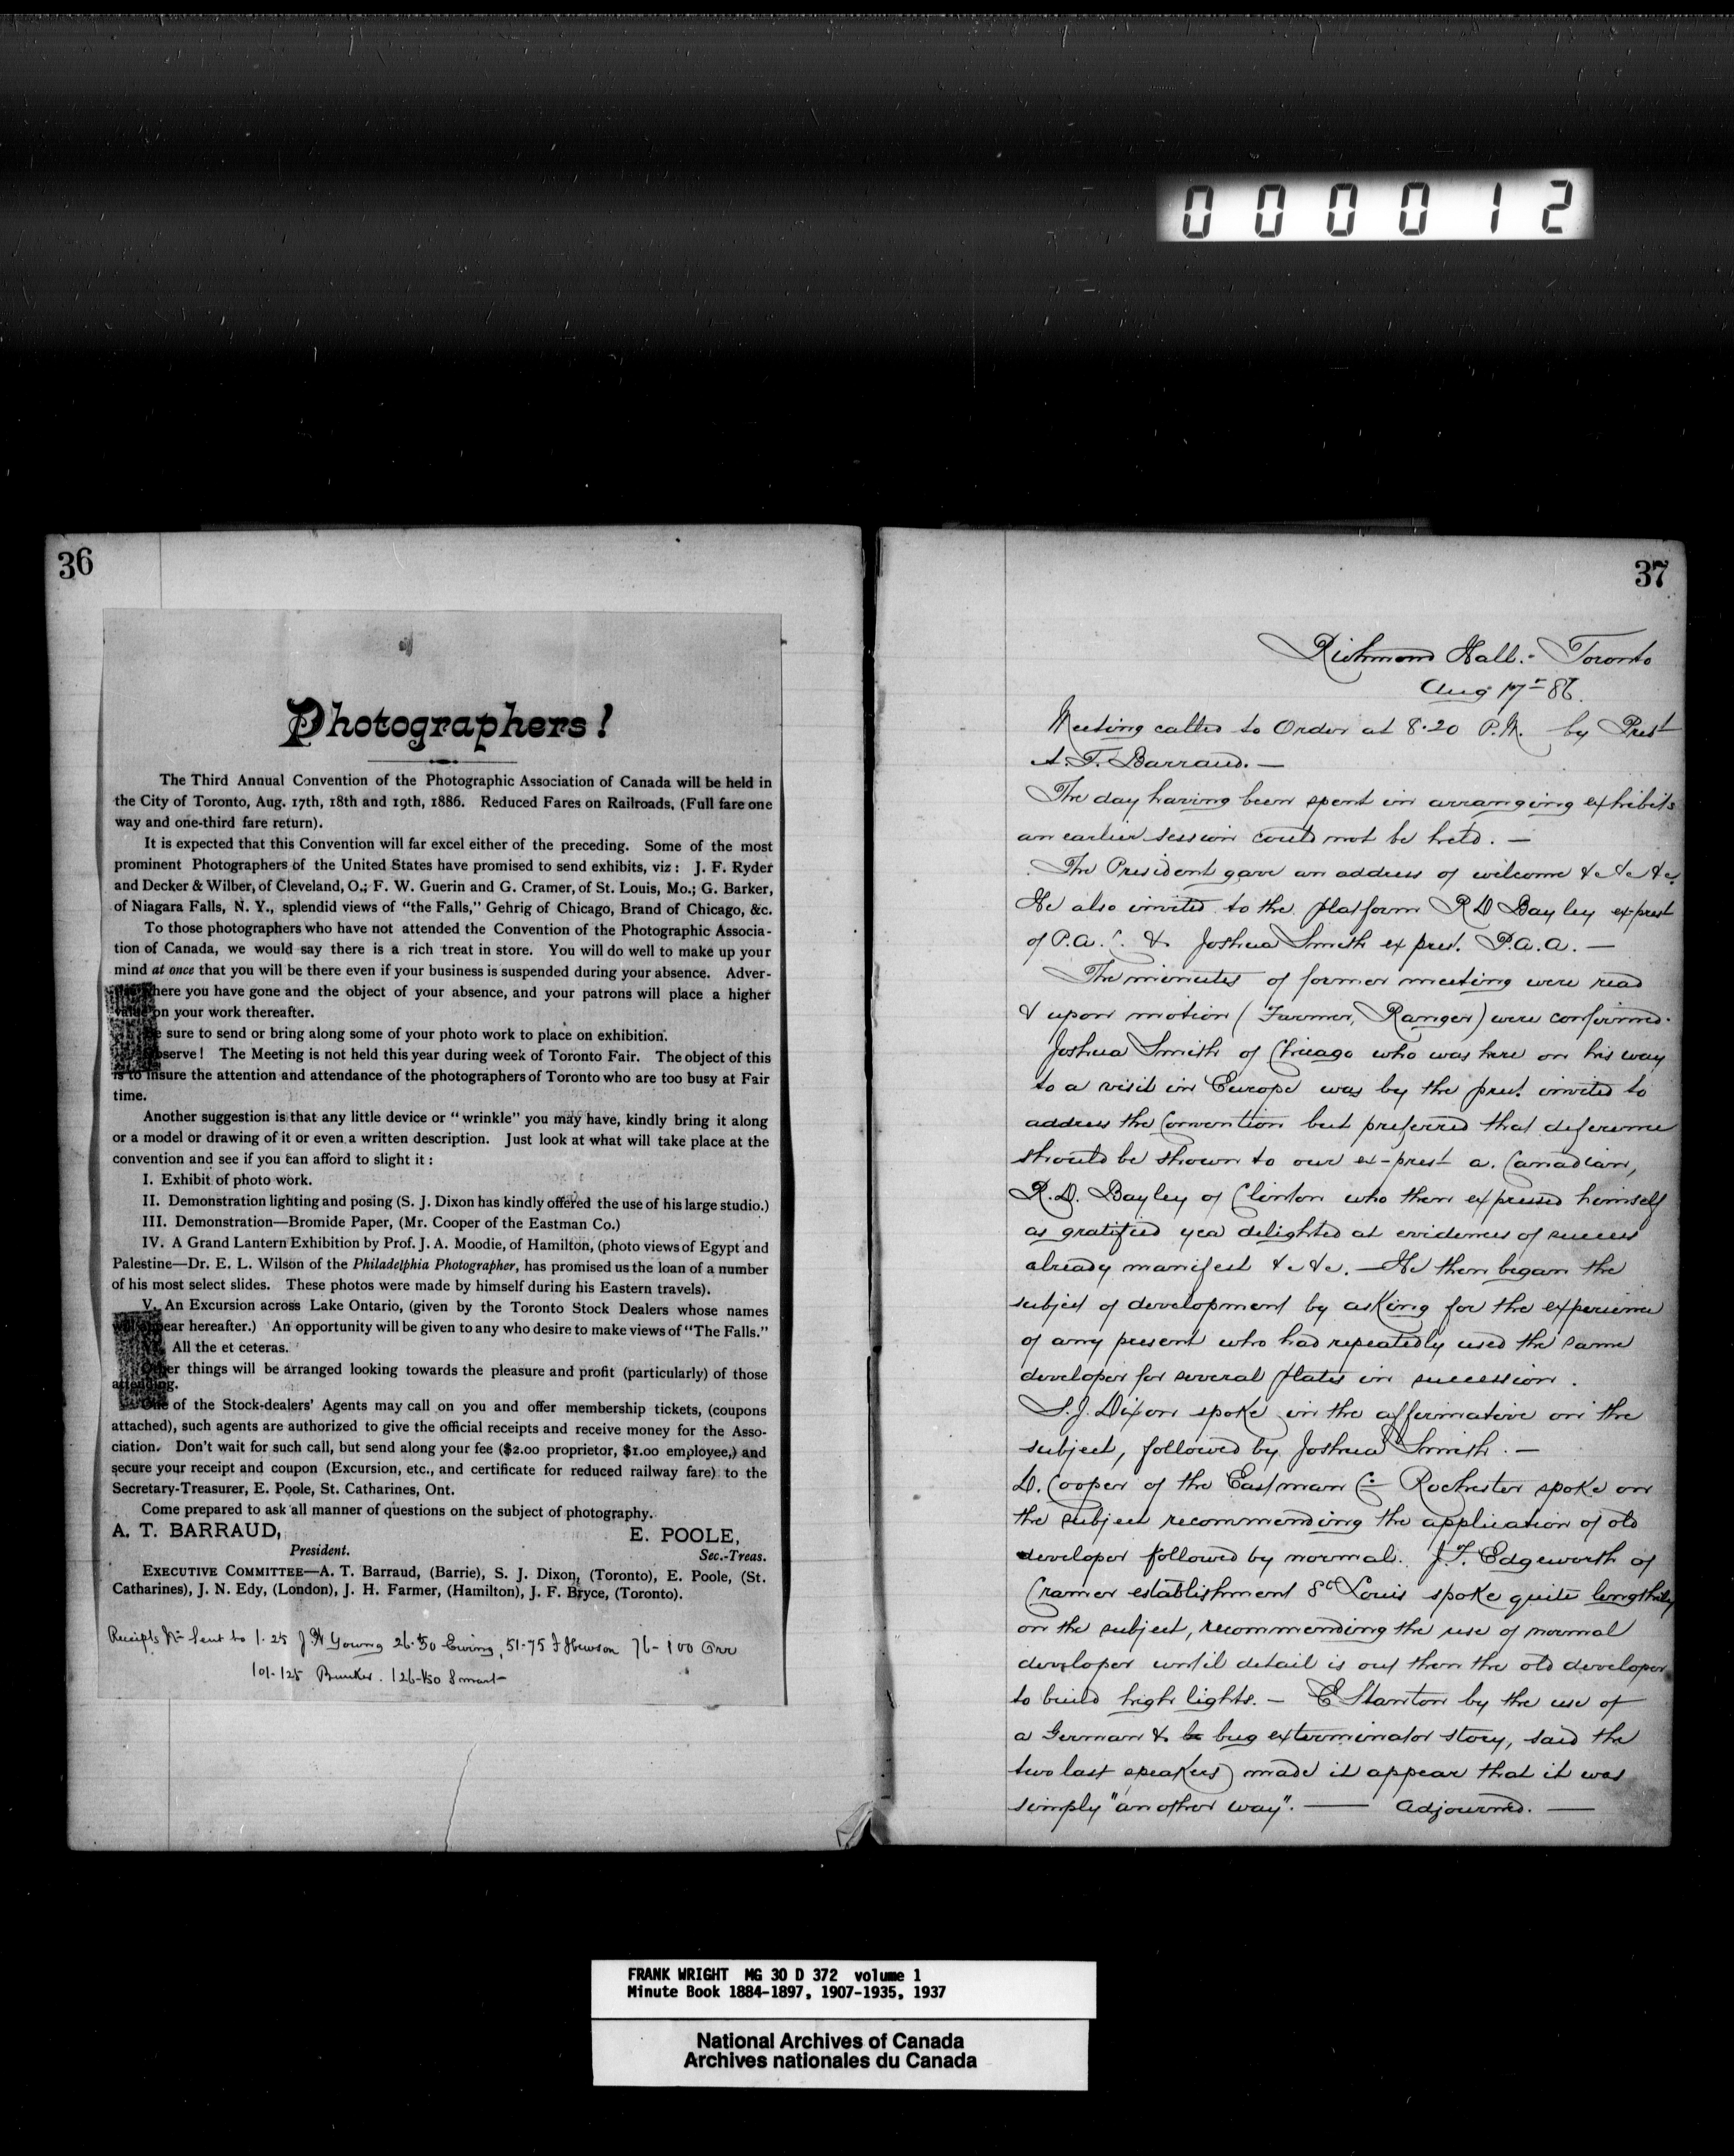 0 0 0 0 1 2
36
Photographers!
The Third Annual Convention of the Photographic Association of Canada will be held in
the City of Toronto, Aug. 17th, 18th and 19th, 1886. Reduced Fares on Railroads, (Full fare one
way and one-third fare return).
It is expected that this Convention will far excel either of the preceding. Some of the most
prominent Photographers of the United States have promised to send exhibits, viz: J. F. Ryder
and Decker & Wilber, of Cleveland, O.; F. W. Guerin and G. Cramer, of St. Louis, Mo.; G. Barker,
of Niagara Falls, N. Y., splendid views of "the Falls," Gehrig of Chicago, Brand of Chicago, &c.
To those photographers who have not attended the Convention of the Photographic Associa-
tion of Canada, we would say there is a rich treat in store. You will do well to make up your
mind at once that you will be there even if your business is suspended during your absence. Adver-
here you have gone and the object of your absence, and your patrons will place a higher
value on your work thereafter.
Be sure to send or bring along some of your photo work to place on exhibition.
Observe! The Meeting is not held this year during week of Toronto Fair. The object of this
is to insure the attention and attendance of the photographers of Toronto who are too busy at Fair
time.
Another suggestion is that any little device or "wrinkle" you may have, kindly bring it along
or a model or drawing of it or even a written description. Just look at what will take place at the
convention and see if you can afford to slight it:
I. Exhibit of photo work.
II. Demonstration lighting and posing (S. J. Dixon has kindly offered the use of his large studio.)
III. Demonstration—Bromide Paper, (Mr. Cooper of the Eastman Co.)
IV. A Grand Lantern Exhibition by Prof. J. A. Moodie, of Hamilton, (photo views of Egypt and
Palestine—Dr. E. L. Wilson of the Philadelphia Photographer, has promised us the loan of a number
of his most select slides. These photos were made by himself during his Eastern travels).
V. An Excursion across Lake Ontario, (given by the Toronto Stock Dealers whose names
will appear hereafter.) An opportunity will be given to any who desire to make views of "The Falls."
VI. All the et ceteras.
Other things will be arranged looking towards the pleasure and profit (particularly) of those
attending.
One of the Stock-dealers' Agents may call on you and offer membership tickets, (coupons
attached), such agents are authorized to give the official receipts and receive money for the Asso-
ciation. Don't wait for such call, but send along your fee ($2.00 proprietor, $1.00 employee,) and
secure your receipt and coupon (Excursion, etc., and certificate for reduced railway fare) to the
Secretary-Treasurer, E. Poole, St. Catharines, Ont.
Come prepared to ask all manner of questions on the subject of photography.
A. T. BARRAUD, E. POOLE,
President. Sec.-Treas.
EXECUTIVE COMMITTEE—A. T. Barraud, (Barrie), S. J. Dixon, (Toronto), E. Poole, (St.
Catharines), J. N. Edy, (London), J. H. Farmer, (Hamilton), J. F. Bryce, (Toronto).
Receipts No Sent to 1-25 J. H Young 26-50 Ewing, 51-75 Hewson 76-100 Orr
101-125 Bunker. 126-150 Smart
37
Richmond Hall.- Toronto
Aug 17th 86.
Meeting called to Order at 8.20 P.M. by Prest
A. T. Barraud. —
The day having been spent in arranging exhibits
an earlier session could not be held. —
The President gave an address of welcome &c &c &c.
He also invited to the platform R D Bayley ex-prest
of P.A.C. & Joshua Smith ex prest. P.A.A. —
The minutes of former meeting were read
& upon motion (Farmer, Ranger) were confirmed.
Joshua Smith of Chicago who was here on his way
to a visit in Europe was by the prest. invited to
address the Convention but preferred that deference
should be shown to our ex-prest a Canadian,
R. D. Bayley of Clinton who then expressed himself
as gratified yea delighted at evidences of success
already manifest &c &c. — He then began the
subject of development by asking for the experience
of any present who had repeatedly used the same
developer for several plates in succession.
S. J. Dixon spoke in the affirmative on the
subject, followed by Joshua Smith. —
D. Cooper of the Eastman Co Rochester spoke on
the subject recommending the application of old
developer followed by normal. J. F. Edgeworth of
Cramer establishment St Louis spoke quite lengthily
on the subject, recommending the use of normal
developer until detail is out then the old developer
to build high lights. — E Stanton by the use of
a German & bug exterminator story, said the
two last speakers) made it appear that it was
simply "another way". — Adjourned. —
FRANK WRIGHT MG 30 D 372 volume 1
Minute Book 1884-1897, 1907-1935, 1937
National Archives of Canada
Archives nationales du Canada